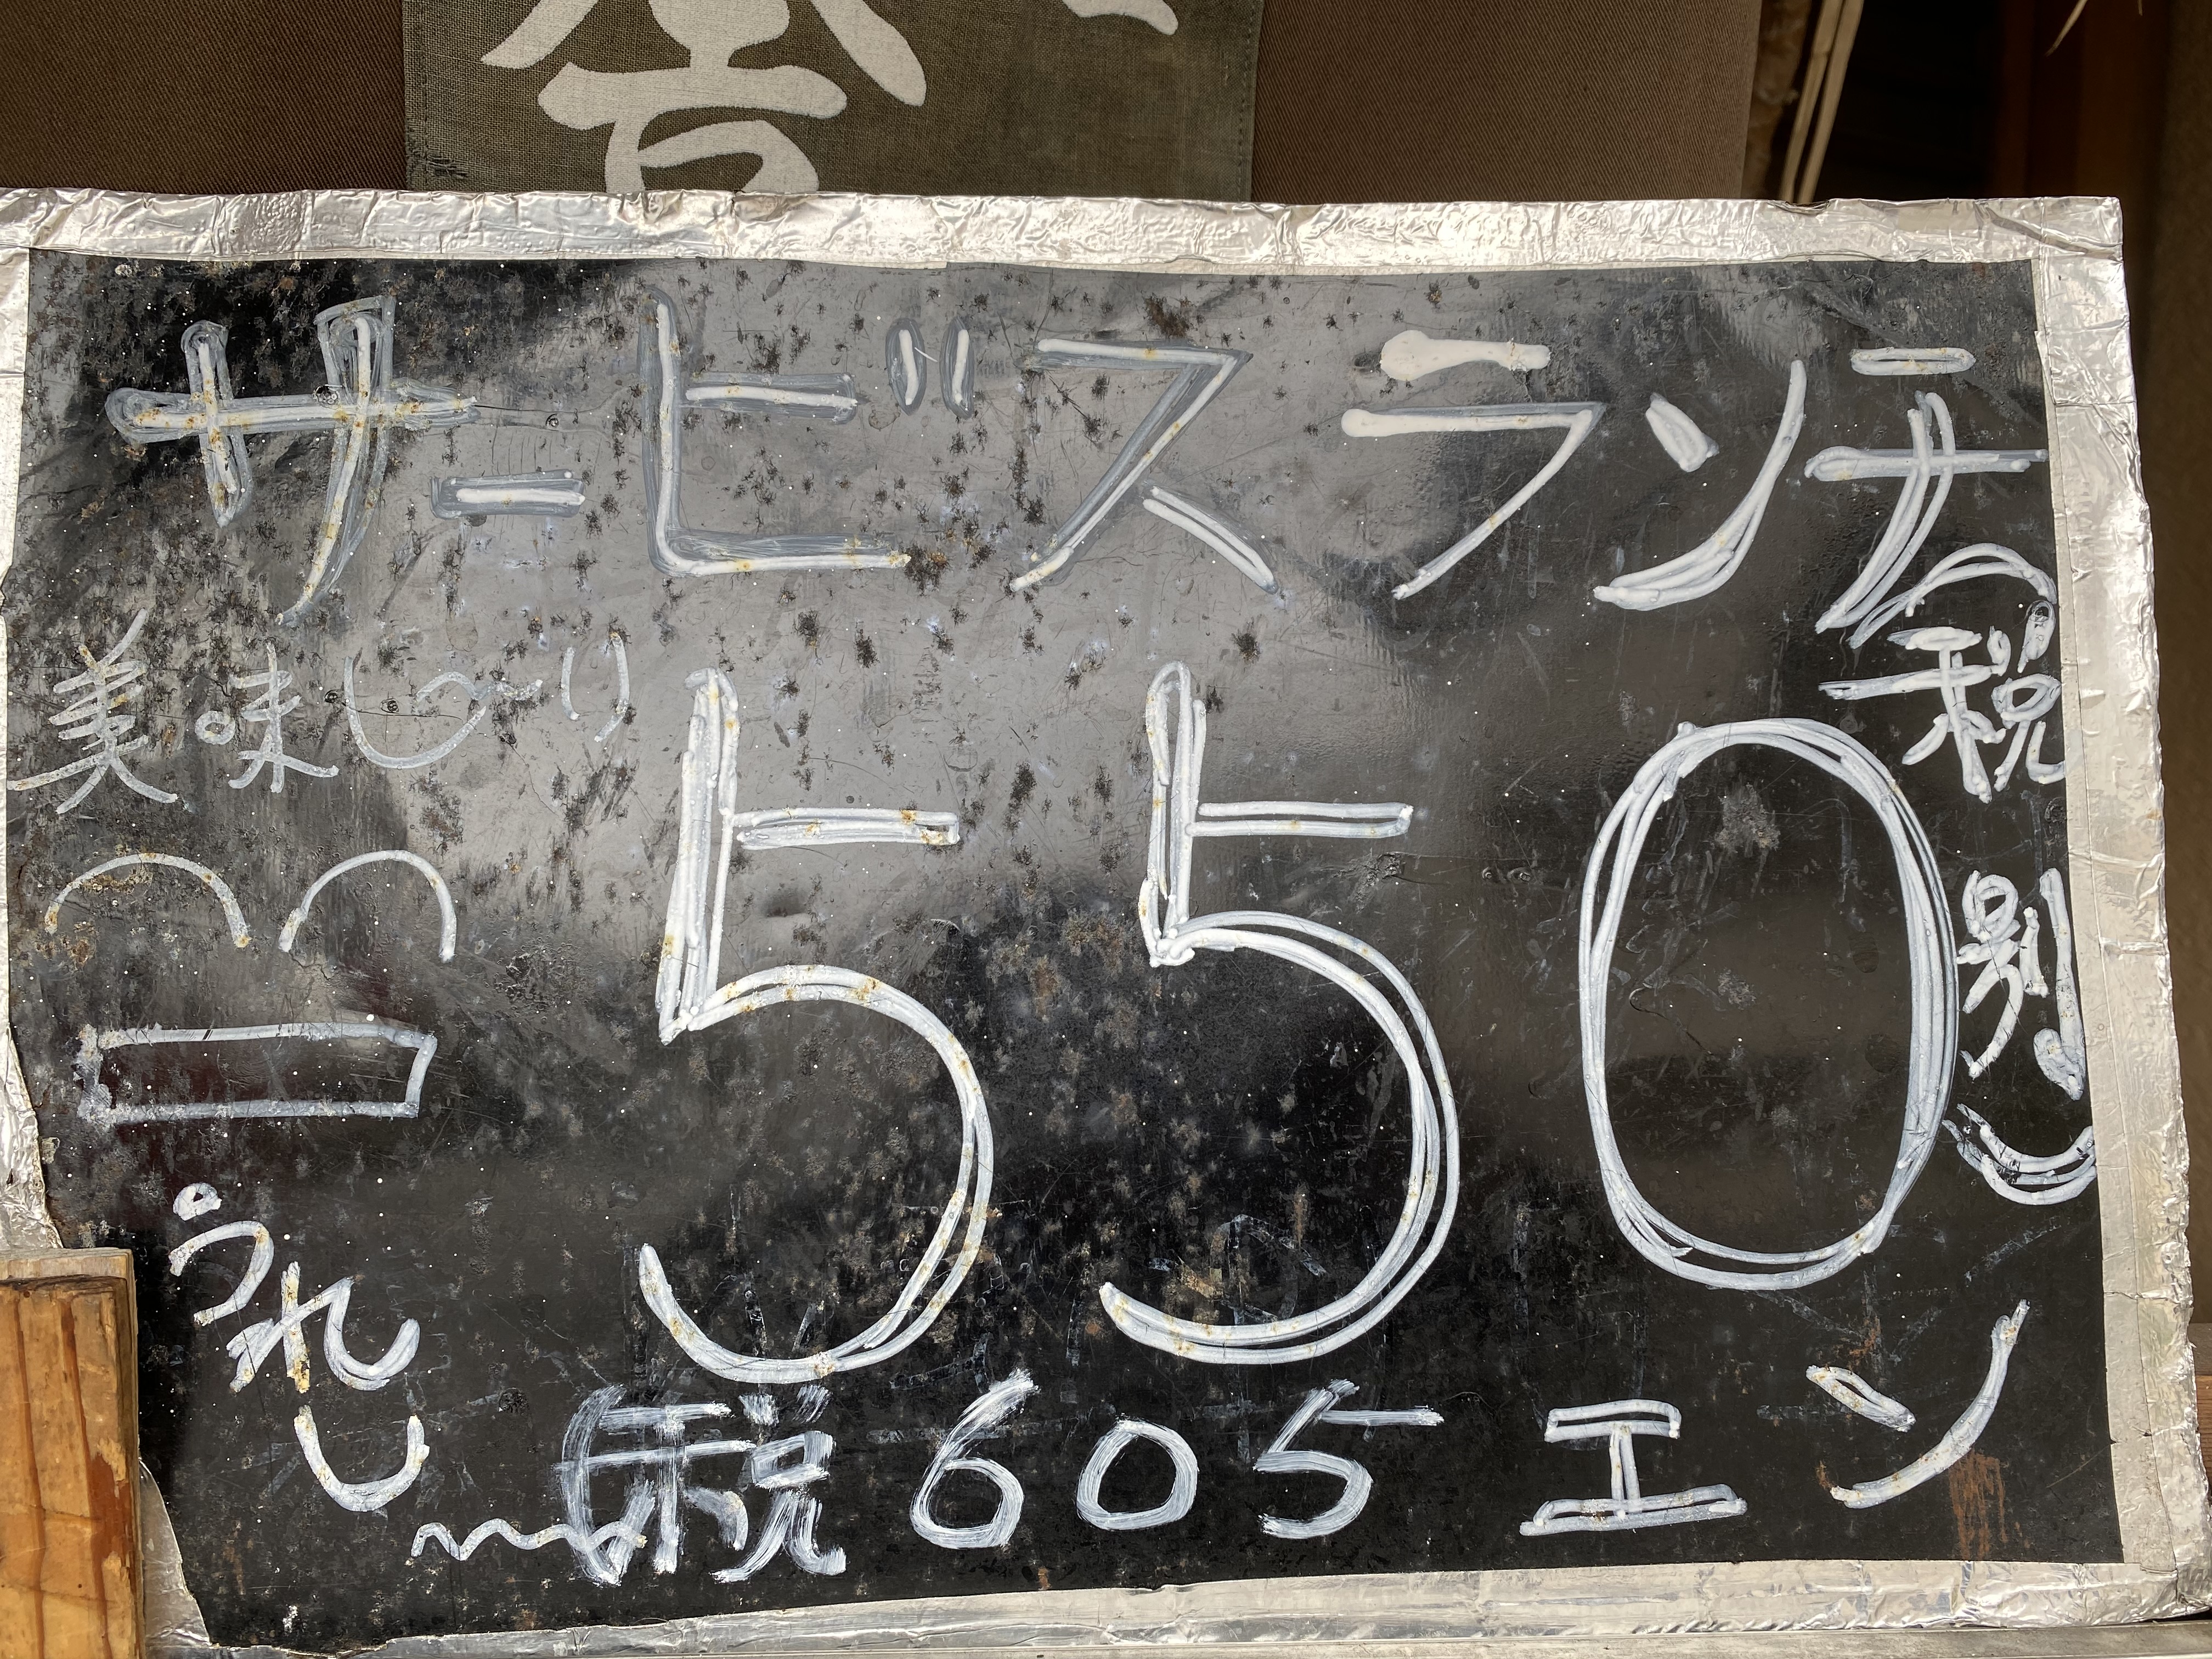 サービスランチ
美味し〜い
550
(税別)
うれし〜
税605エン